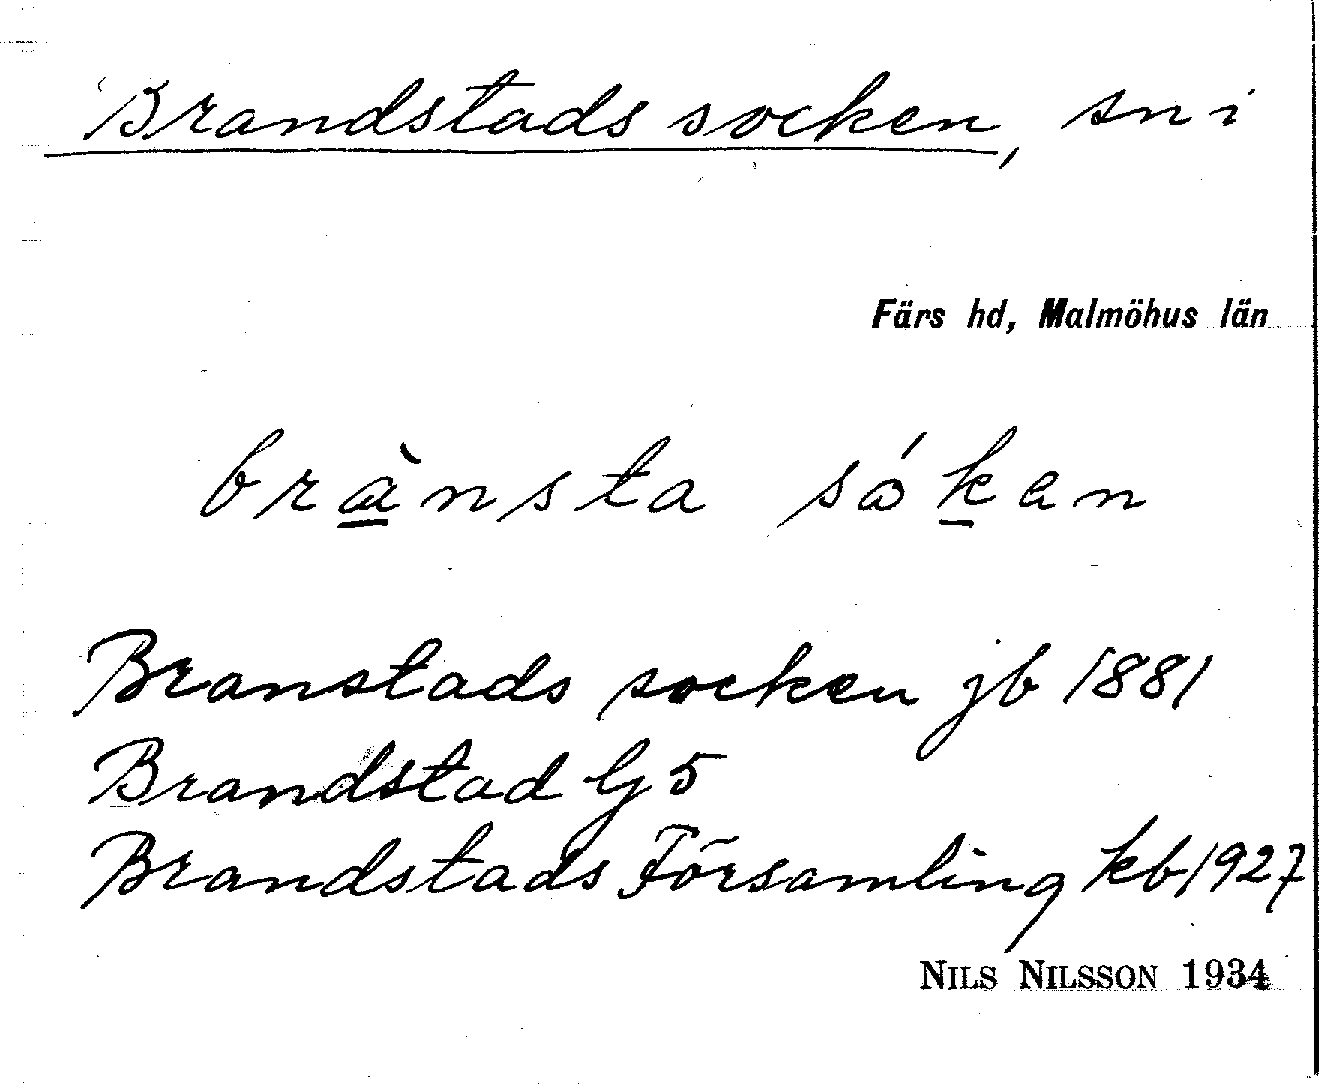 Brandstads socken, sn i
Färs hd, Malmöhus län
brànsta sókan
Branstads socken jb 1881
Brandstad Gj 5
Brandstads Församling kb 1927
NILS NILSSON 1934